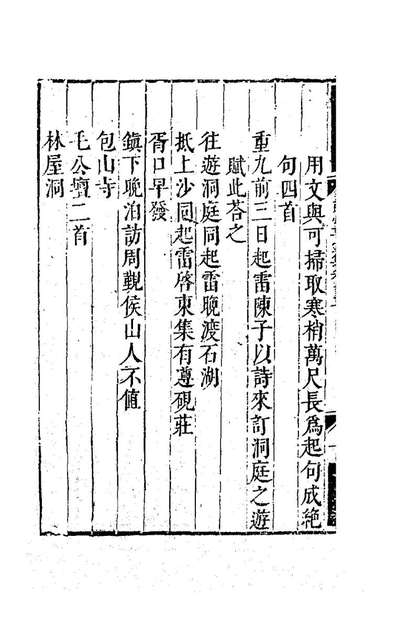 用文與可掃取寒梢萬尺長爲起句成絶
句四首
重九前三日起雷陳子以詩來訂洞庭之遊
賦此荅之
往遊洞庭同起雷晚渡石湖
抵上沙同起雷啓東集有尊硯莊
胥口早發
鎭下晚泊訪周觀侯山人不値
包山寺
毛公壇二首
林屋洞